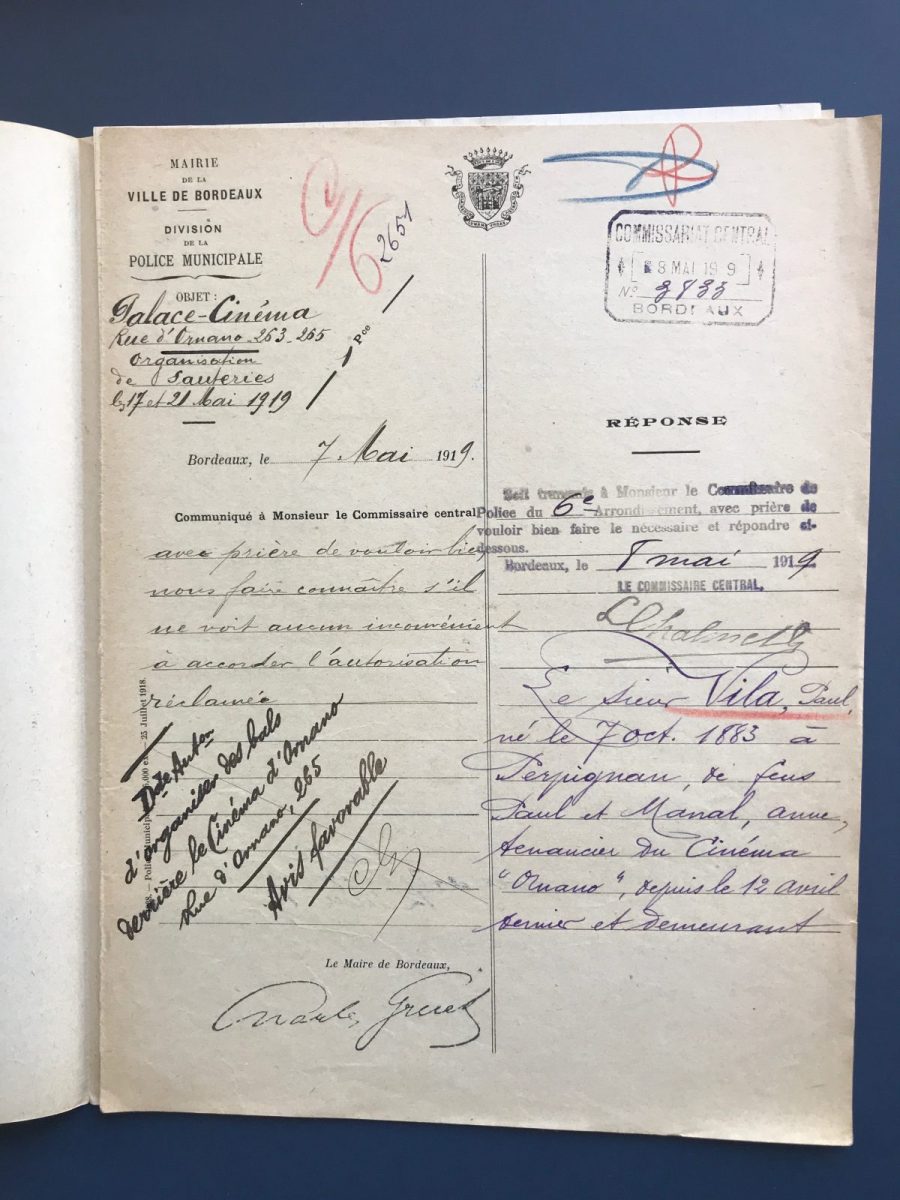 MAIRIE
DE LA
VILLE DE BORDEAUX
DIVISION
DE LA
POLICE MUNICIPALE
OBJET :
Palace-Cinéma
Rue d'Ornano 263-265
Organisation
de Sauteries
les 17 et 21 Mai 1919
2651
Pce
Bordeaux, le 7 Mai 1919.
Communiqué à Monsieur le Commissaire central
avec prière de vouloir bien
nous faire connaître s'il
ne voit aucun inconvénient
à accorder l'autorisation
réclamée
25 Juillet 1918.
Dde Auton
d'organiser des bals
derrière le Cinéma d'Ornano
Rue d'Ornano, 265
Avis favorable
Le Maire de Bordeaux,
Charles Gruet
COMMISSARIAT CENTRAL
8 MAI 19 9
No 3433
BORDEAUX
RÉPONSE
Soit transmis à Monsieur le Commissaire de
Police du 6e Arrondissement, avec prière de
vouloir bien faire le nécessaire et répondre ci-
dessous.
Bordeaux, le 8 mai 1919
LE COMMISSAIRE CENTRAL,
Le sieur Vila, Paul,
né le 7 oct. 1883 à
Perpignan, de feus
Paul et Manal, anne,
tenancier du Cinéma
"Ornano", depuis le 12 avril
dernier et demeurant